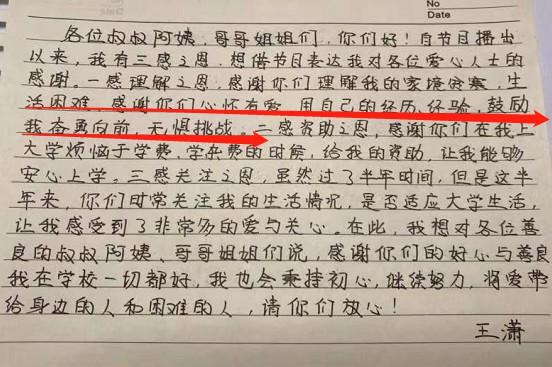 No
Date
各位叔叔阿姨、哥哥姐姐们，你们好！自节目播出
以来，我有三感之恩，想借节目表达我对各位爱心人士的
感谢。一感理解之恩，感谢你们理解我的家境贫寒，生
活困难，感谢你们心怀有爱，用自己的经历、经验，鼓励
我奋勇向前，无惧挑战。二感资助之恩，感谢你们在我上
大学烦恼于学费、学杂费的时候，给我的资助，让我能够
安心上学。三感关注之恩，虽然过了半年时间，但是这半
年来，你们时常关注我的生活情况，是否适应大学生活，
让我感受到了非常多的爱与关心。在此，我想对各位善
良的叔叔阿姨、哥哥姐姐们说，感谢你们的好心与善良
我在学校一切都好，我也会秉持初心，继续努力，将爱带
给身边的人和困难的人，请你们放心！
王潇